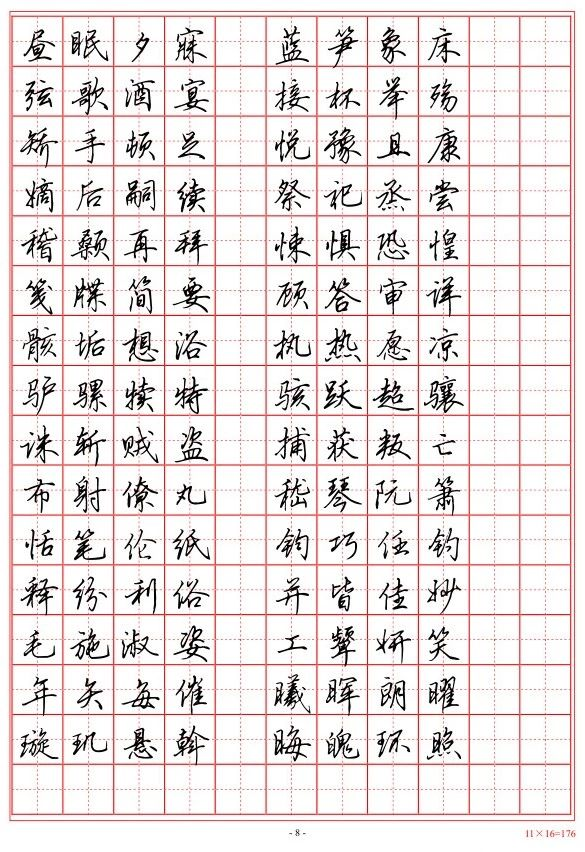 昼眠夕寐 蓝笋象床
弦歌酒宴 接杯举殇
矫手顿足 悦豫且康
嫡后嗣续 祭祀蒸尝
稽颡再拜 悚惧恐惶
笺牒简要 顾答审详
骸垢想浴 执热愿凉
驴骡犊特 骇跃超骧
诛斩贼盗 捕获叛亡
布射僚丸 嵇琴阮箫
恬笔伦纸 钧巧任钓
释纷利俗 并皆佳妙
毛施淑姿 工颦妍笑
年矢每催 曦晖朗曜
璇玑悬斡 晦魄环照
- 8 -
11×16=176